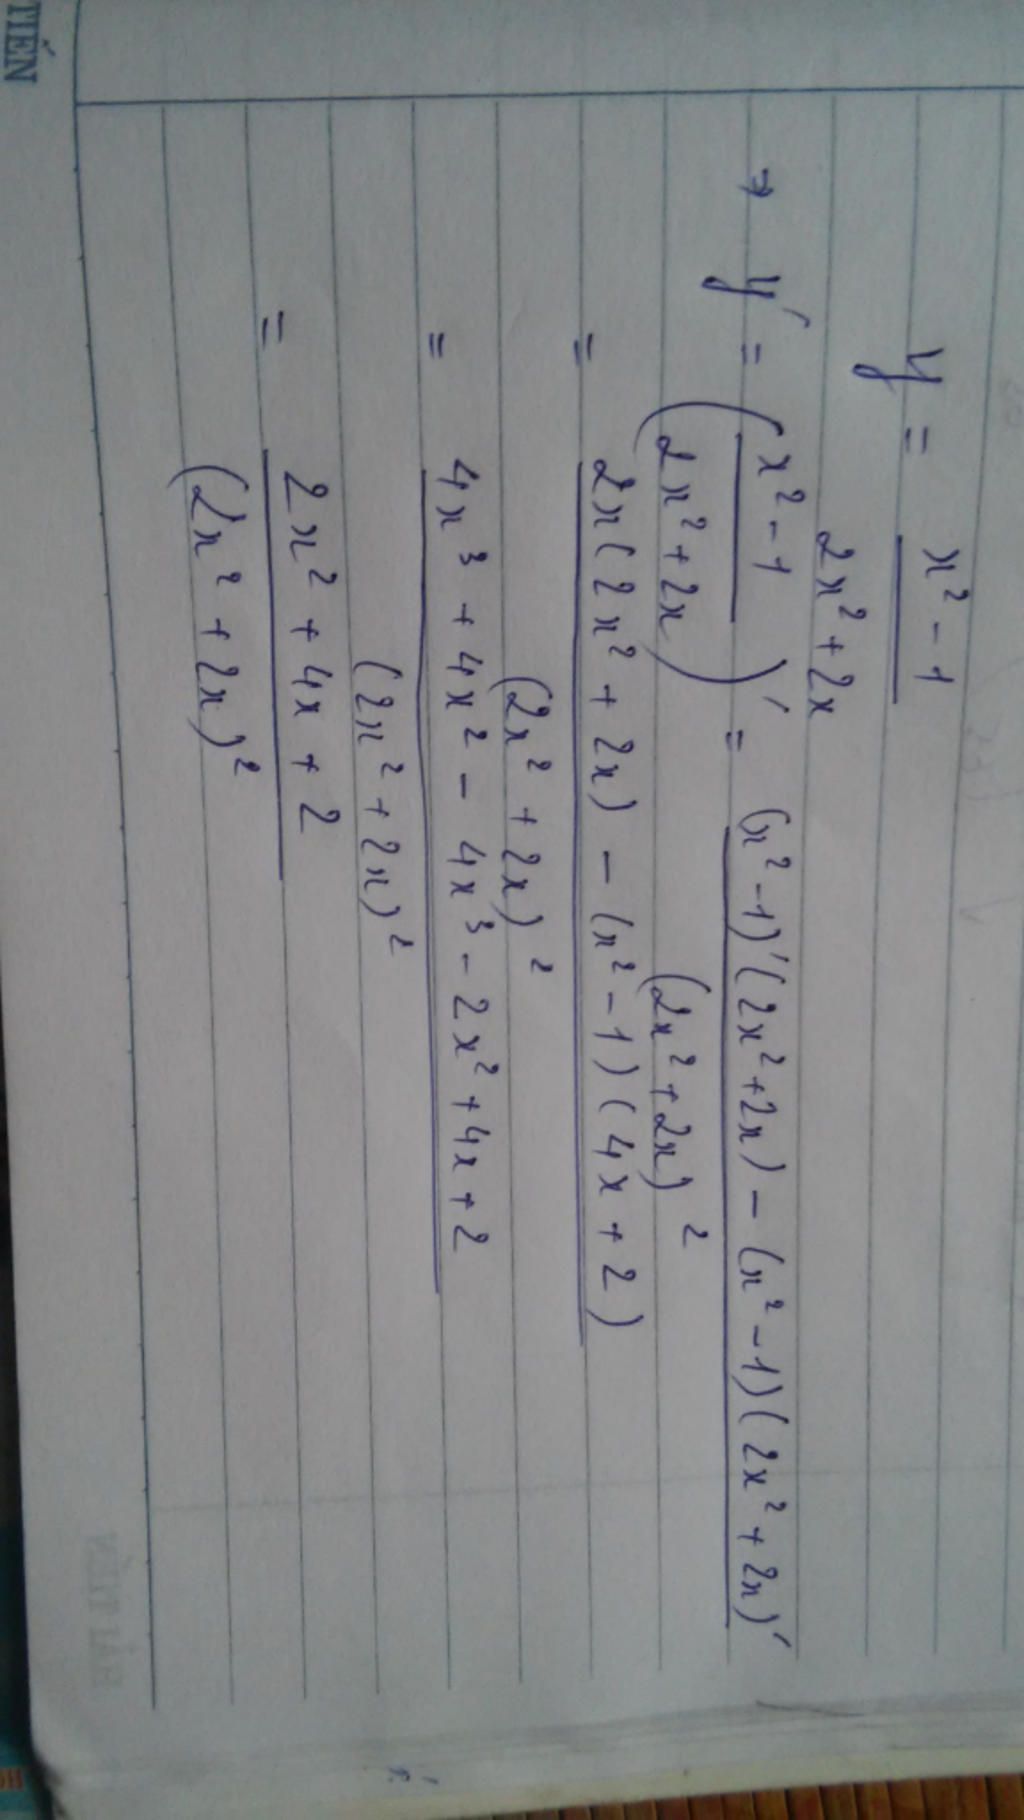 y = x² - 1
2x² + 2x
⇒ y' = (x² - 1 / 2x² + 2x)' = (x² - 1)'(2x² + 2x) - (x² - 1)(2x² + 2x)'
(2x² + 2x)²
= 2x(2x² + 2x) - (x² - 1)(4x + 2)
(2x² + 2x)²
= 4x³ + 4x² - 4x³ - 2x² + 4x + 2
(2x² + 2x)²
= 2x² + 4x + 2
(2x² + 2x)²
TIẾN